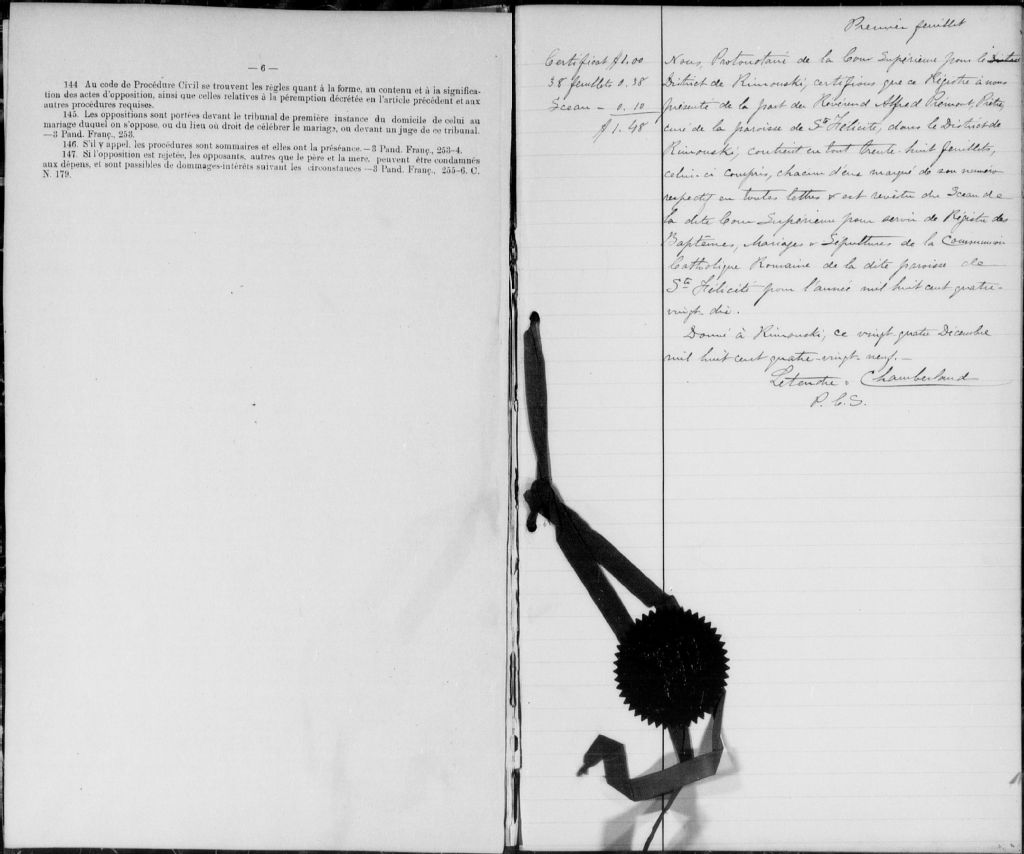 — 6 —
144 Au code de Procédure Civil se trouvent les règles quant à la forme, au contenu et à la significa-
tion des actes d'opposition, ainsi que celles relatives à la péremption décrétée en l'article précédent et aux
autres procédures requises.
145. Les oppositions sont portées devant le tribunal de première instance du domicile de celui au
mariage duquel on s'oppose, ou du lieu où droit de célébrer le mariage, ou devant un juge de ce tribunal.
—3 Pand. Franç., 253.
146. S'il y appel, les procédures sont sommaires et elles ont la préséance.—3 Pand. Franç., 253-4.
147. Si l'opposition est rejetée, les opposants, autres que le père et la mere, peuvent être condamnés
aux dépens, et sont passibles de dommages-intérêts suivant les circonstances—3 Pand. Franç., 255-6. C.
N. 179.
Premier feuillet
Certificat $1.00
38 feuillets 0.38
Sceau — 0.10
$1.48
Nous, Protonotaire de la Cour Supérieure pour le
District de Rimouski, certifions que ce Régistre à nous
présenté de la part du Révérend Alfred Piémont, Prêtre,
curé de la paroisse de Ste Félicité, dans le District de
Rimouski, contient en tout trente-huit feuillets,
celui-ci compris, chacun d'eux marqué de son numéro
respectif en toutes lettres & est revêtu du Sceau de
la dite Cour Supérieure pour servir de Régistre des
Baptêmes, Mariages & Sépultures de la Communion
Catholique Romaine de la dite paroisse de
Ste Félicité pour l'année mil huit cent quatre-
vingt-dix.
Donné à Rimouski, ce vingt quatre Décembre
mil huit cent quatre-vingt-neuf.—
Letendre & Chamberland
P. C. S.